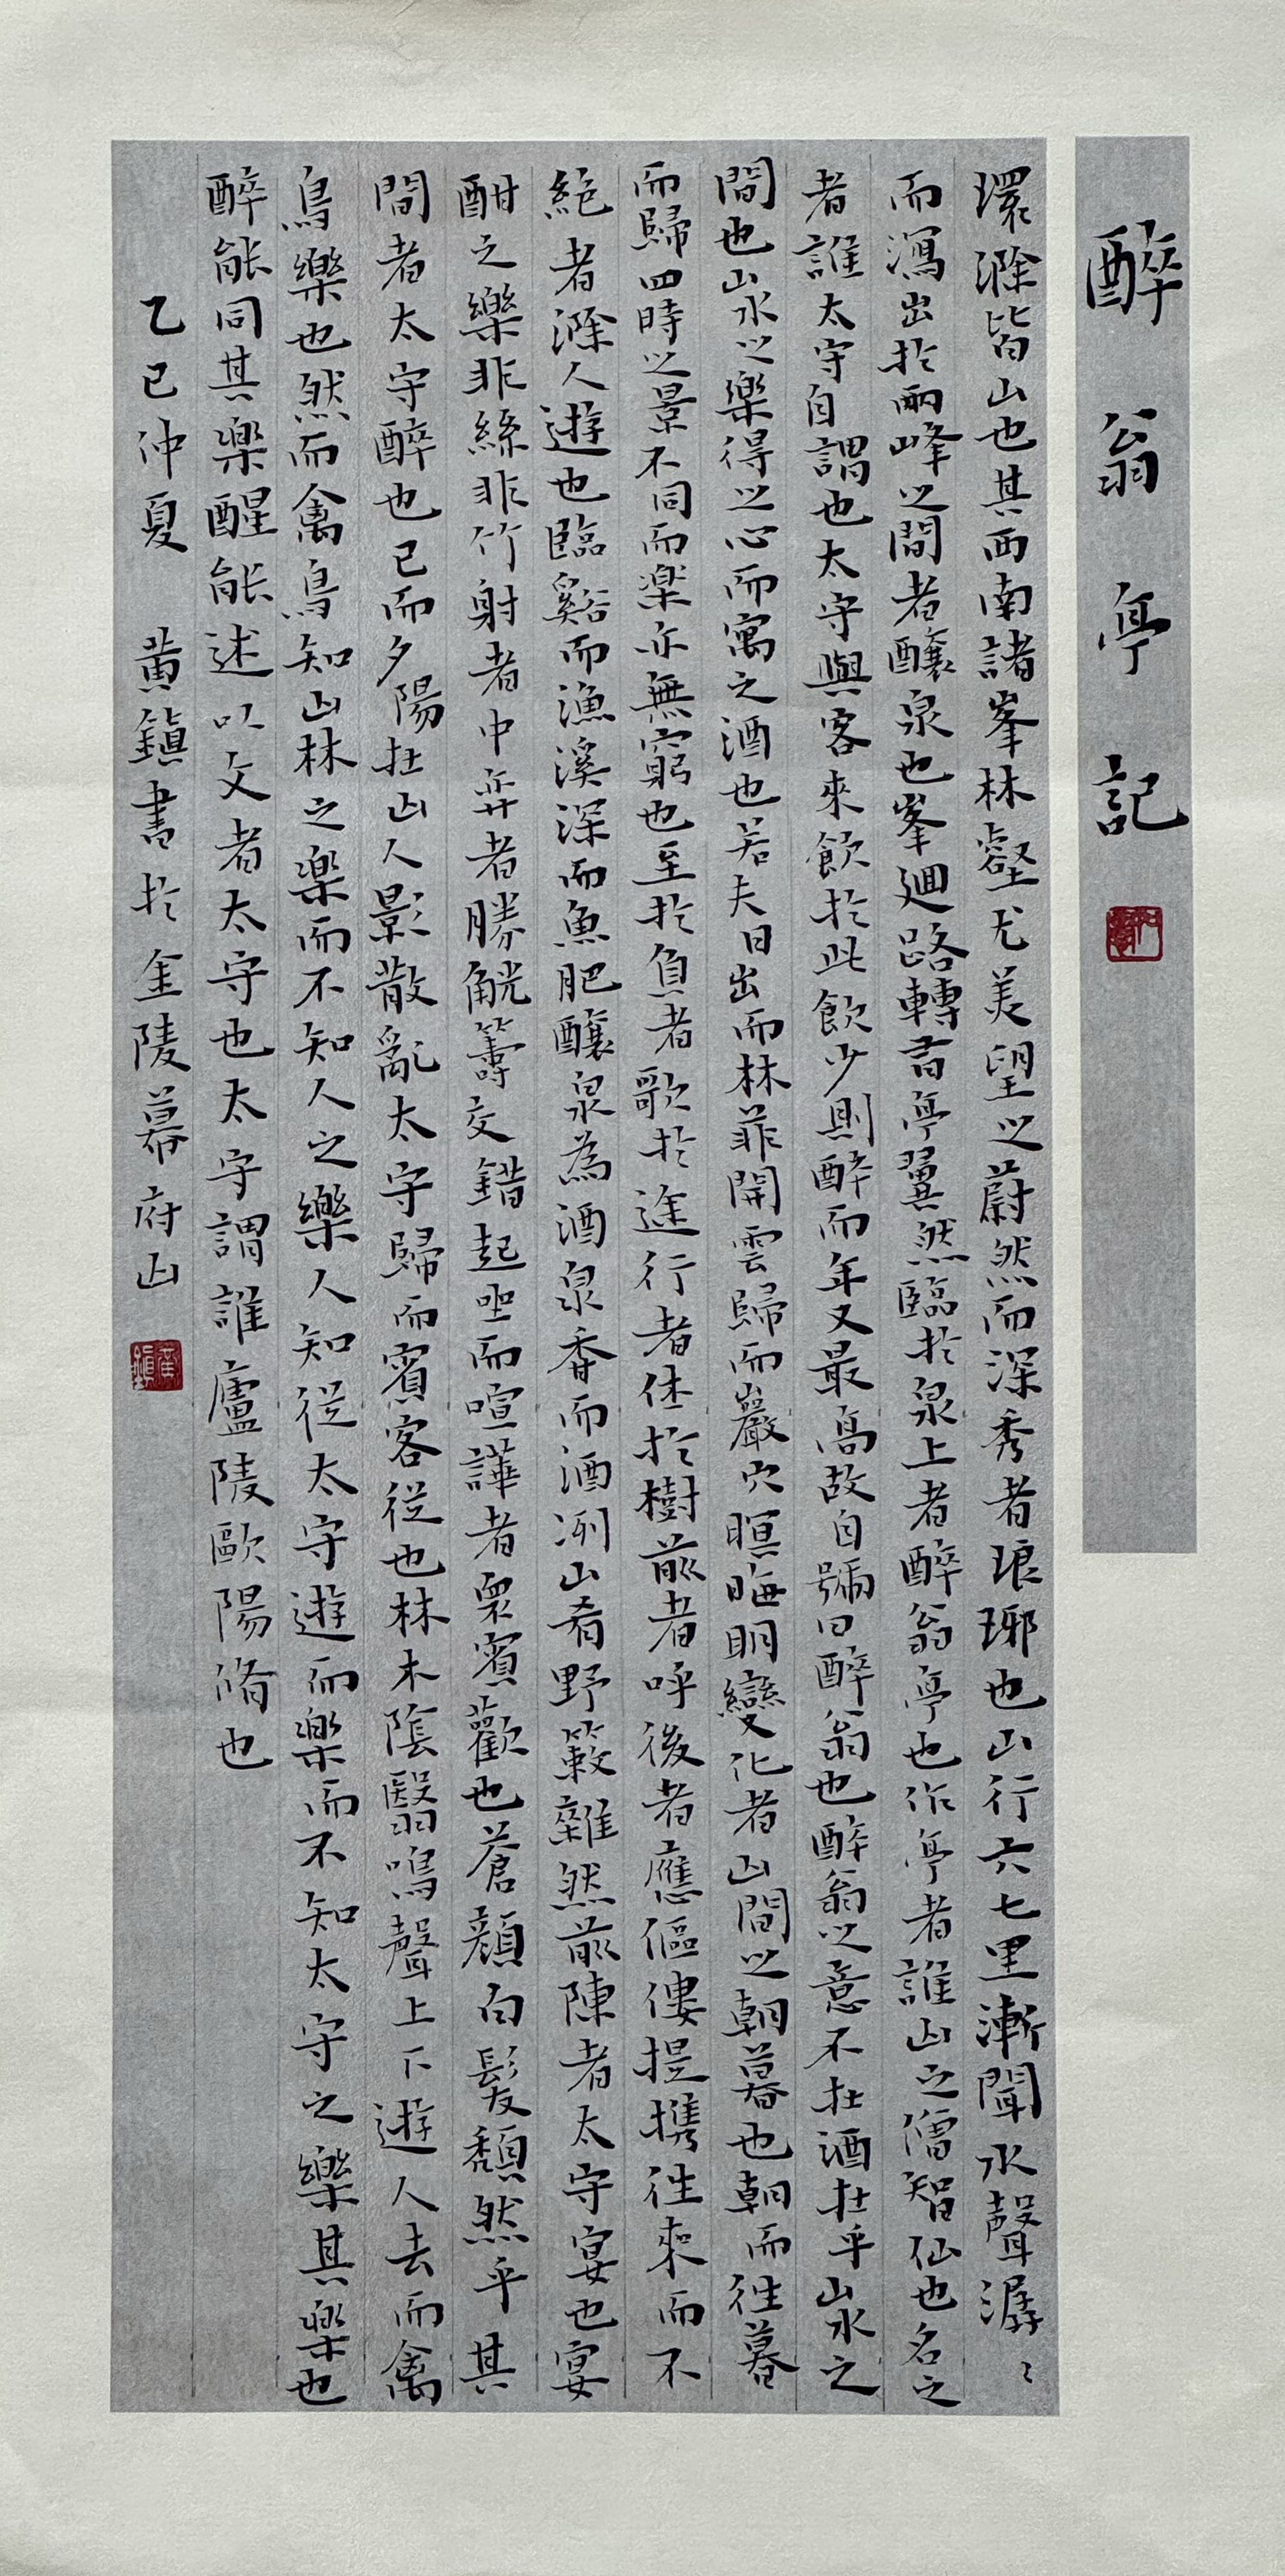 醉翁亭記
環滁皆山也其西南諸峯林壑尤美望之蔚然而深秀者琅琊也山行六七里漸聞水聲潺〻
而瀉出於兩峰之間者釀泉也峯迴路轉有亭翼然臨於泉上者醉翁亭也作亭者誰山之僧智仙也名之
者誰太守自謂也太守與客來飲於此飲少則醉而年又最高故自號曰醉翁也醉翁之意不在酒在乎山水之
間也山水之樂得之心而寓之酒也若夫日出而林菲開雲歸而巖穴暝晦明變化者山間之朝暮也朝而往暮
而歸四時之景不同而樂亦無窮也至於負者歌於途行者休於樹前者呼後者應傴僂提攜往來而不
絕者滁人遊也臨谿而漁溪深而魚肥釀泉為酒泉香而酒洌山肴野蔌雜然前陳者太守宴也宴
酣之樂非絲非竹射者中弈者勝觥籌交錯起坐而喧譁者眾賓歡也蒼顏白髮頹然乎其
間者太守醉也已而夕陽在山人影散亂太守歸而賓客從也林木陰翳鳴聲上下遊人去而禽
鳥樂也然而禽鳥知山林之樂而不知人之樂人知從太守遊而樂而不知太守之樂其樂也
醉能同其樂醒能述以文者太守也太守謂誰廬陵歐陽脩也
乙巳仲夏 黃鎮書於金陵幕府山